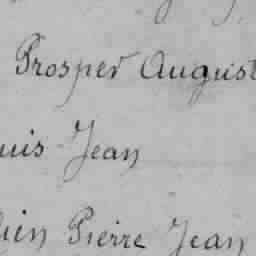 Prosper August
uis Jean
ien Pierre Jean